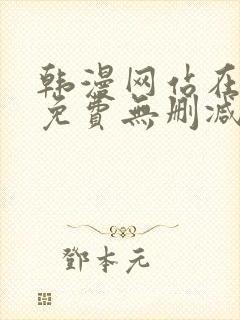 韩漫网站在
免費無刪减
鄧本元